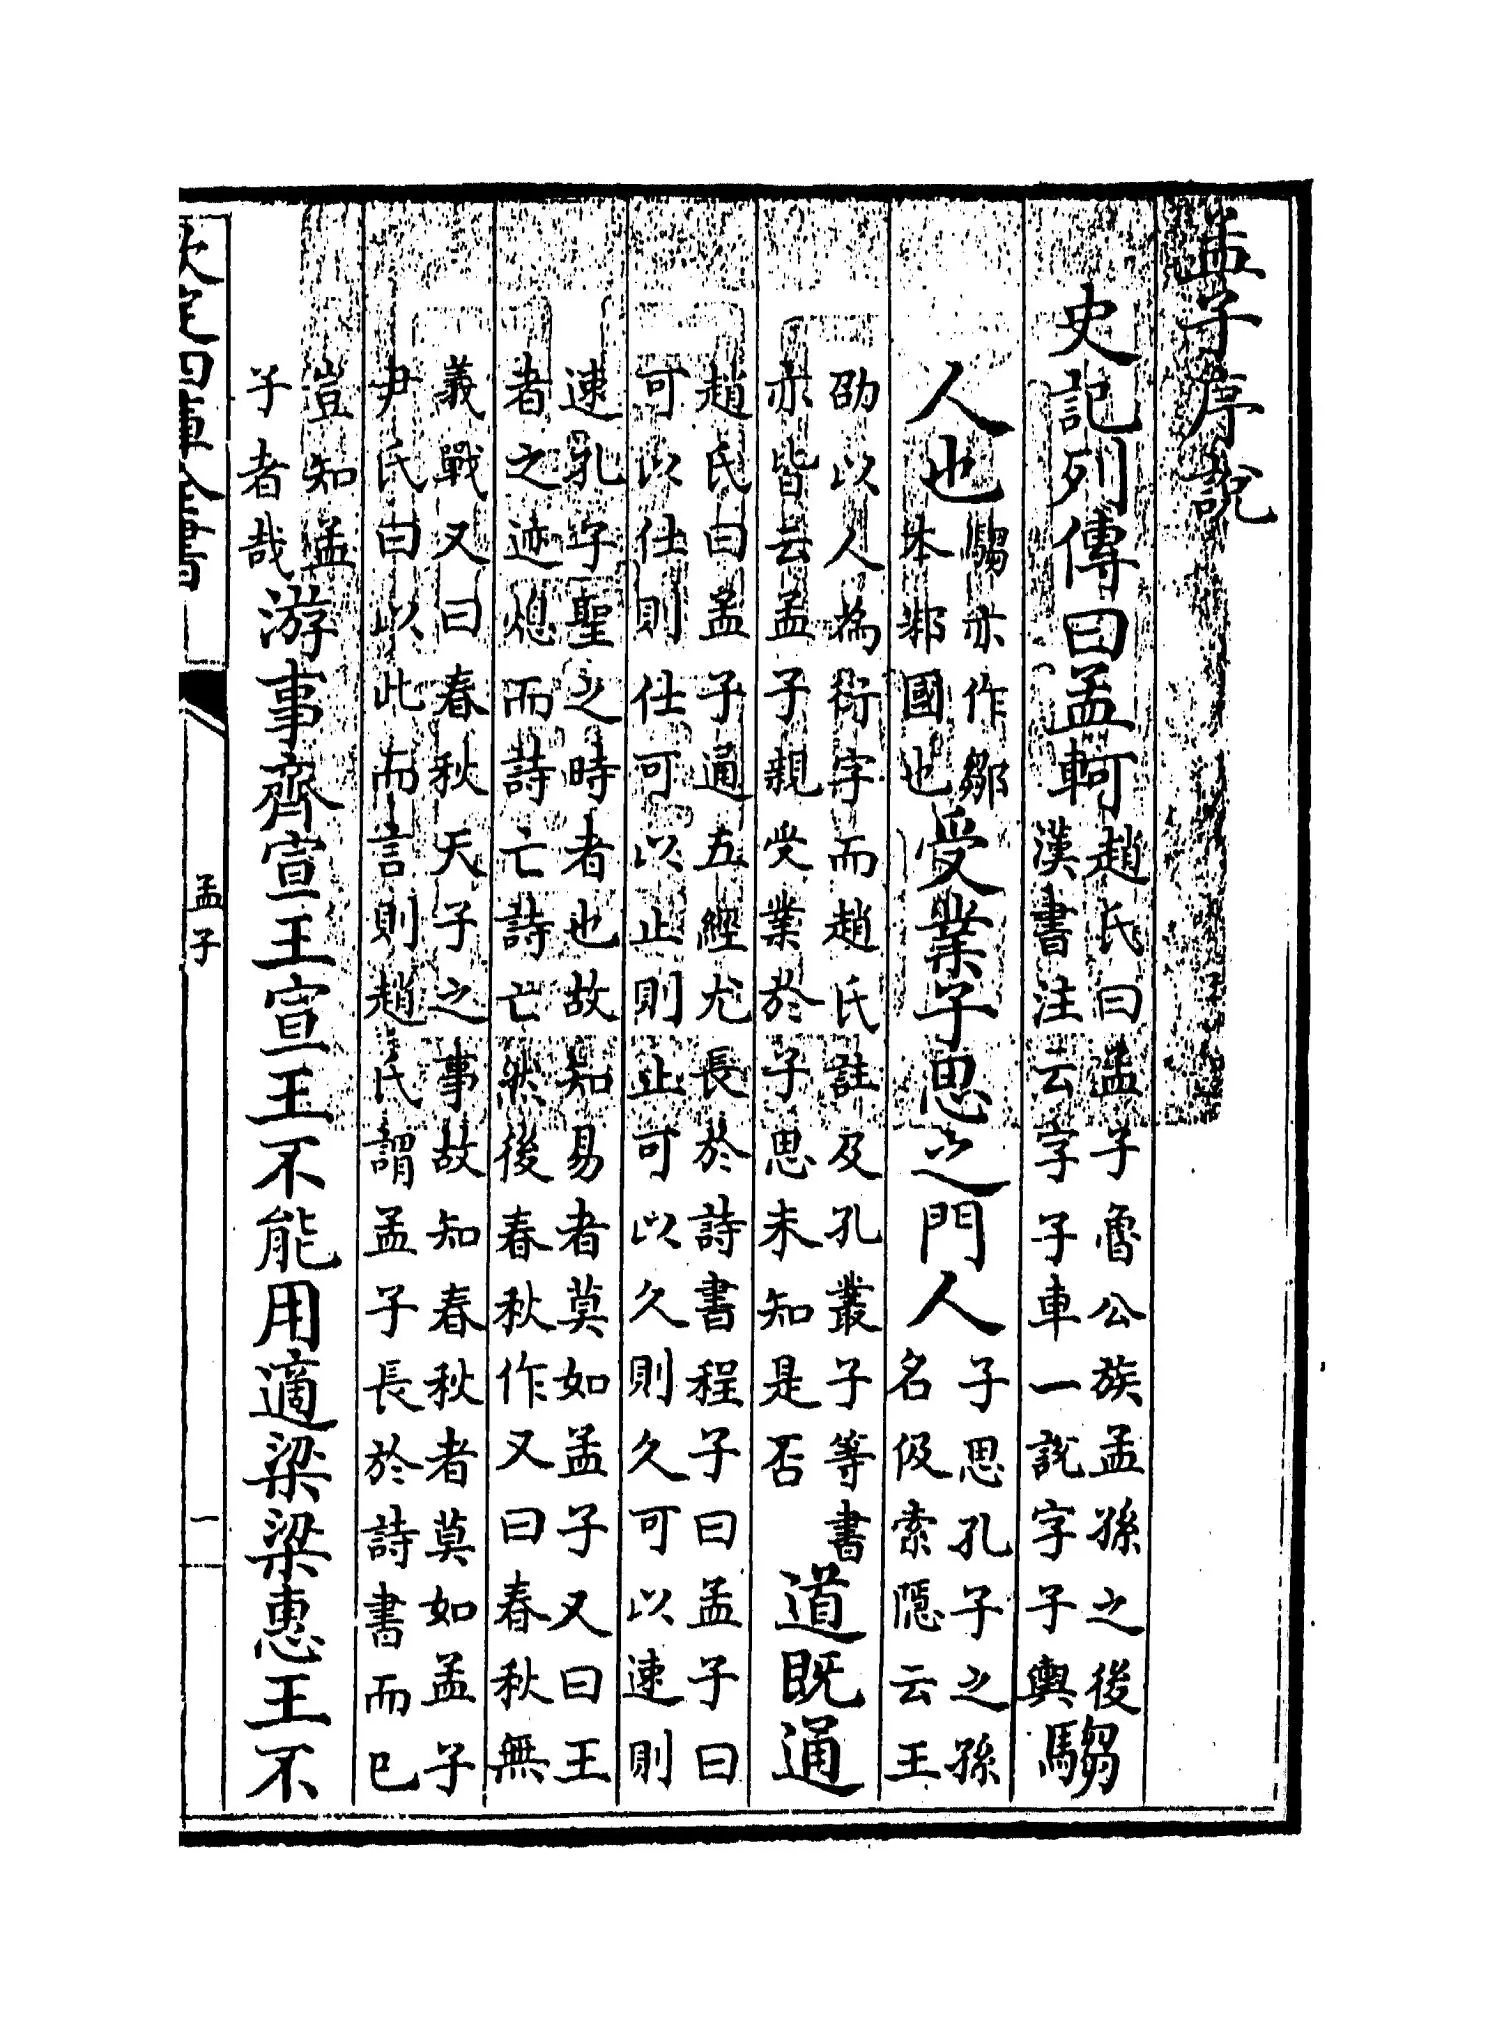 孟子序說
史記列傳曰孟軻趙氏曰孟子魯公族孟孫之後漢書注云字子車一說字子輿騶
人也騶亦作鄒本邾國也受業子思之門人子思孔子之孫名伋索隱云王
劭以人為衍字而趙氏註及孔叢子等書亦皆云孟子親受業於子思未知是否道既通
趙氏曰孟子通五經尤長於詩書程子曰孟子曰可以仕則仕可以止則止可以久則久可以速則
速孔子聖之時者也故知易者莫如孟子又曰王者之迹熄而詩亡詩亡然後春秋作又曰春秋無
義戰又曰春秋天子之事故知春秋者莫如孟子尹氏曰以此而言則趙氏謂孟子長於詩書而已
豈知孟子者哉游事齊宣王宣王不能用適梁梁惠王不
欽定四庫全書
孟子
一